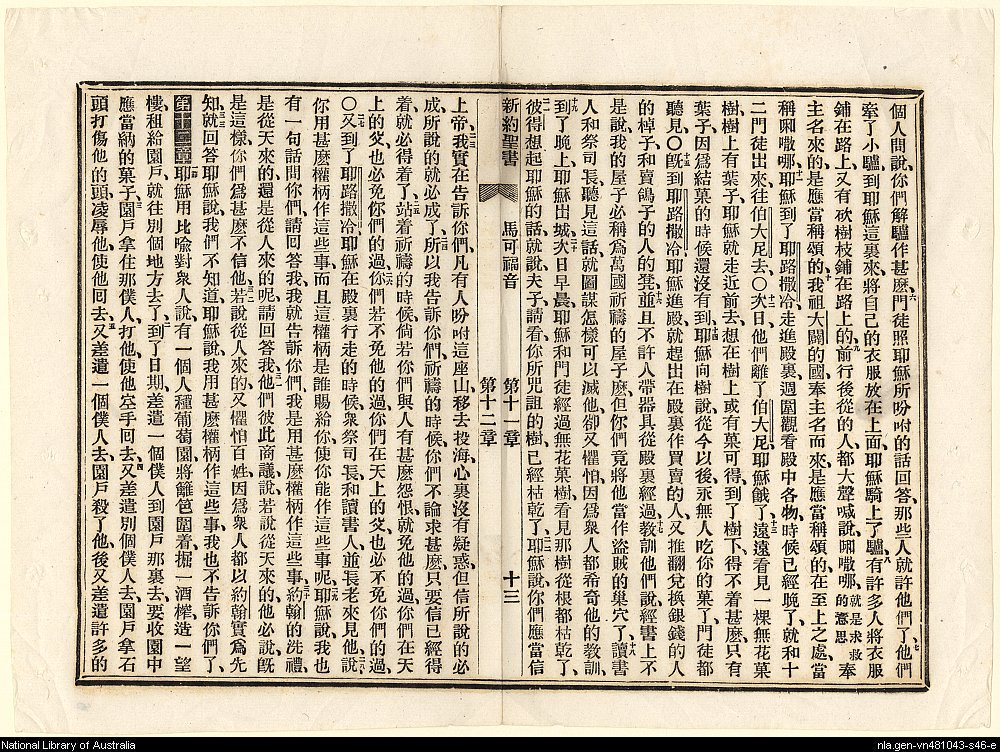 個人問說、你們解驢作甚麼、六門徒照耶穌所吩咐的話回答、那些人就許他們了、七他們
牽了小驢到耶穌這裏來、將自己的衣服放在上面、耶穌騎上了驢、八有許多人將衣服
鋪在路上、又有砍樹枝鋪在路上的、九前行後從的人、都大聲喊說、㗌嗷哪、就是求救的意思奉
主名來的、是應當稱頌的、十我祖大闢的國、奉主名而來、是應當稱頌的、在至上之處當
稱㗌嗷哪、十一耶穌到了耶路撒冷、走進殿裏、週圍觀看殿中各物、時候已經晚了、就和十
二門徒出來往伯大尼去、〇十二次日他們離了伯大尼、耶穌餓了、十三遠遠看見一棵無花菓
樹、樹上有葉子、耶穌就走近前去、想在樹上或有菓可得、到了樹下、得不着甚麼、只有
葉子、因爲結菓的時候還沒有到、十四耶穌向樹說、從今以後永無人吃你的菓了、門徒都
聽見、〇十五旣到耶路撒冷、耶穌進殿、就趕出在殿裏作買賣的人、又推翻兌換銀錢的人
的棹子、和賣鴿子的人的凳、十六並且不許人帶器具從殿裏經過、十七敎訓他們說、經書上不
是說、我的屋子必稱爲萬國祈禱的屋子麼、但你們竟將他當作盜賊的巢穴了、十八讀書
人和祭司長聽見這話、就圖謀怎樣可以滅他、卻又懼怕、因爲衆人都希奇他的敎訓、
十九到了晚上、耶穌出城、二十次日早晨、耶穌和門徒經過、無花菓樹、看見那樹從根都枯乾了、
二一彼得想起耶穌的話、就說、夫子、請看、你所咒詛的樹、已經枯乾了、二二耶穌說、你們應當信
新約聖書 馬可福音 第十一章 第十二章 十三
上帝、二三我實在告訴你們、凡有人吩咐這座山、移去投海、心裏沒有疑惑、但信所說的必
成、所說的就必成了、二四所以我告訴你們、祈禱的時候、你們不論求甚麼、只要信已經得
着、就必得着了、二五站着祈禱的時候、倘若你們與人有甚麼怨恨、就免他的過、你們在天
上的父、也必免你們的過、二六你們若不免他的過、你們在天上的父、也必不免你們的過、
〇二七又到了耶路撒冷、耶穌在殿裏行走的時候、衆祭司長和讀書人、並長老來見他、二八說
你用甚麼權柄作這些事、而且這權柄是誰賜給你、使你能作這些事呢、二九耶穌說、我也
有一句話問你們、請回答我、我就告訴你們、我是用甚麼權柄作這些事、三十約翰的洗禮
是從天來的、還是從人來的呢、請回答我、三一他們彼此商議說、若說從天來的、他必說、旣
是這樣、你們爲甚麼不信他、三二若說從人來的、又懼怕百姓、因爲衆人都以約翰實爲先
知、三三就回答耶穌說、我們不知道、耶穌說、我用甚麼權柄作這些事、我也不告訴你們了、
第十二章一耶穌用比喩對衆人說、有一個人種葡萄園、將籬笆圈着、掘一酒榨、造一望
樓、租給園戶、就往別個地方去了、二到了日期、差遣一個僕人到園戶那裏去、要收園中
應當納的菓子、三園戶拿住那僕人、打他、使他空手回去、四又差遣別個僕人去、園戶拿石
頭打傷他的頭、凌辱他、使他回去、五又差遣一個僕人去、園戶殺了他、後又差遣許多的
National Library of Australia
nla.gen-vn481043-s46-e